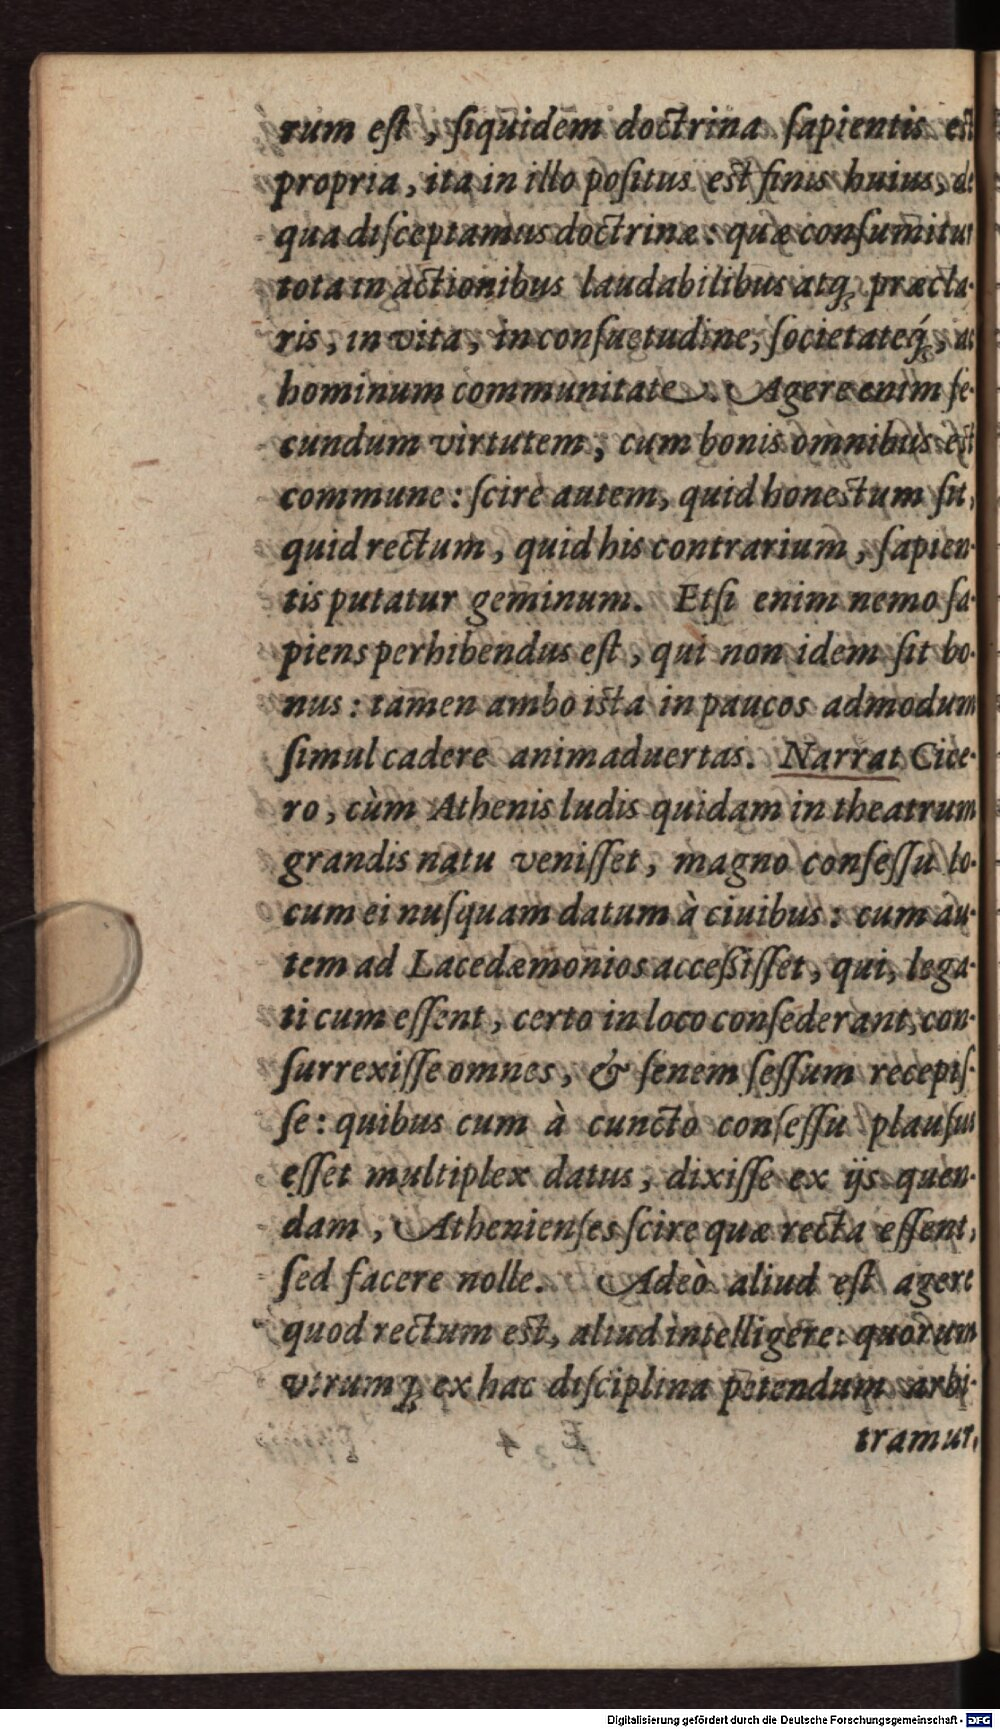 rum eſt, ſiquidem doctrina ſapientis est
propria, ita in illo poſitus est finis huius, de
qua diſceptamus doctrinæ: quæ conſumitur
tota in actionibus laudabilibus atq́; præcla-
ris, in vita, in conſuetudine, ſocietateq́;, ac
hominum communitate. Agere enim ſe-
cundum virtutem, cum bonis omnibus est
commune: ſcire autem, quid honestum ſit,
quid rectum, quid his contrarium, ſapien-
tis putatur geminum. Etſi enim nemo ſa-
piens perhibendus eſt, qui non idem ſit bo-
nus: tamen ambo ista in paucos admodum
ſimul cadere animaduertas. Narrat Cice-
ro, cùm Athenis ludis quidam in theatrum
grandis natu veniſſet, magno conſeſſu lo-
cum ei nuſquam datum à ciuibus: cum au-
tem ad Lacedæmonios acceßiſſet, qui, lega-
ti cum eſſent, certo in loco conſederant, con-
ſurrexiſſe omnes, & ſenem ſeſſum recepiſ-
ſe: quibus cum à cuncto conſeſſu plauſus
eſſet multiplex datus, dixiſſe ex ijs quen-
dam, Athenienſes ſcire quæ recta eſſent,
ſed facere nolle. Adeò aliud eſt agere
quod rectum est, aliud intelligere: quorum
vtrumq; ex hac diſciplina petendum arbi-
tramur,
Digitalisierung gefördert durch die Deutsche Forschungsgemeinschaft - DFG